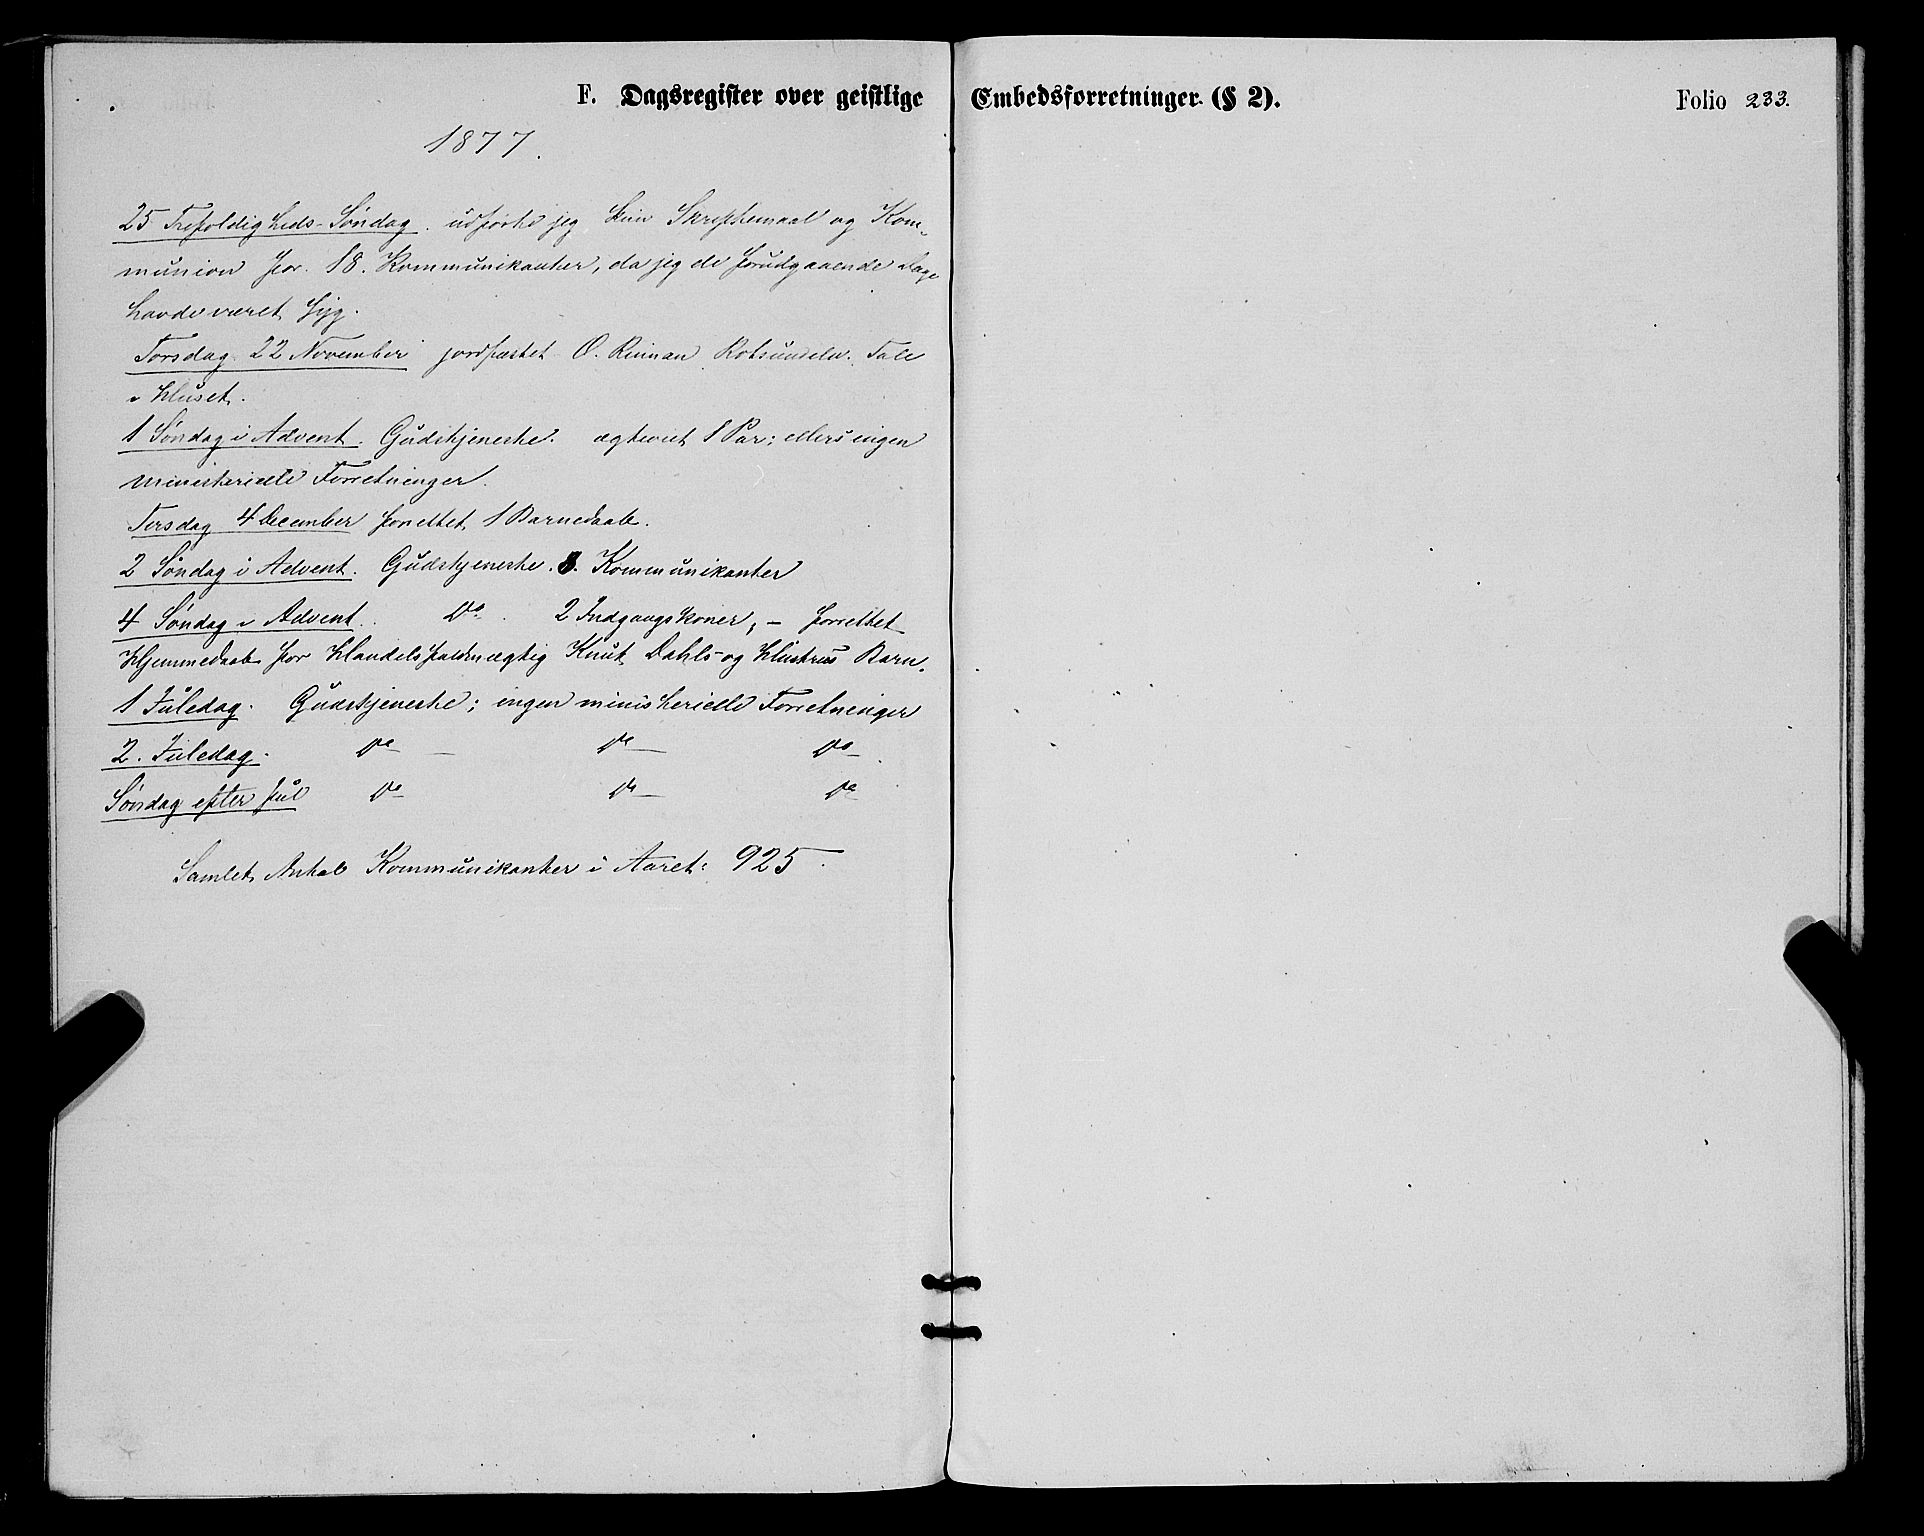 F. Dagsregister over geistlige Embedsforretninger. (§ 2).
Folio 233.
1877.
25 Trefoldigheds-Søndag. udførte jeg kun Skriftemaal og Kom-
munion for 18. Kommunikanter, da jeg de forudgaaende Dage
havde været syg.
Torsdag 22 November jordfæstet O. Rotsundelv. Tale
i Huset.
1 Søndag i Advent. Gudstjeneste. ægteviet 1 Par; ellers ingen
ministerielle Forretninger.
Tirsdag 4 December forrettet 1 Barnedaab.
2 Søndag i Advent. Gudstjeneste. 8. Kommunikanter
4 Søndag i Advent. Do. 2 Indgangskoner, – forrettet
Hjemmedaab for Handelsfuldmægtig Knut Dahls og Hustrus Barn.
1 Juledag. Gudstjeneste; ingen ministerielle Forretninger
2. Juledag. Do — Do — Do
Søndag efter Jul Do Do — Do
Samlet Antal Kommunikanter i Aaret: 925.